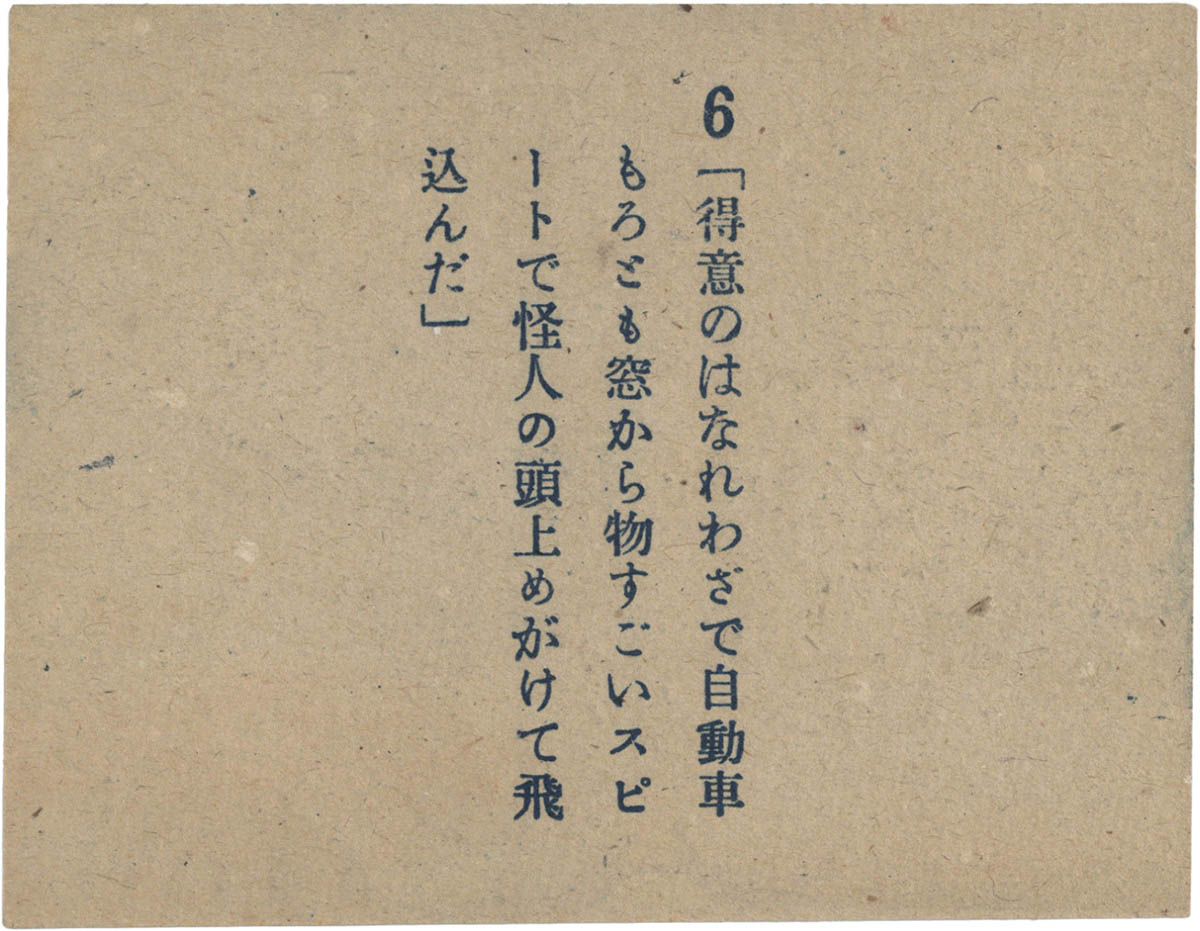 6「得意のはなれわざで自動車
もろとも窓から物すごいスピ
ートで怪人の頭上めがけて飛
込んだ」